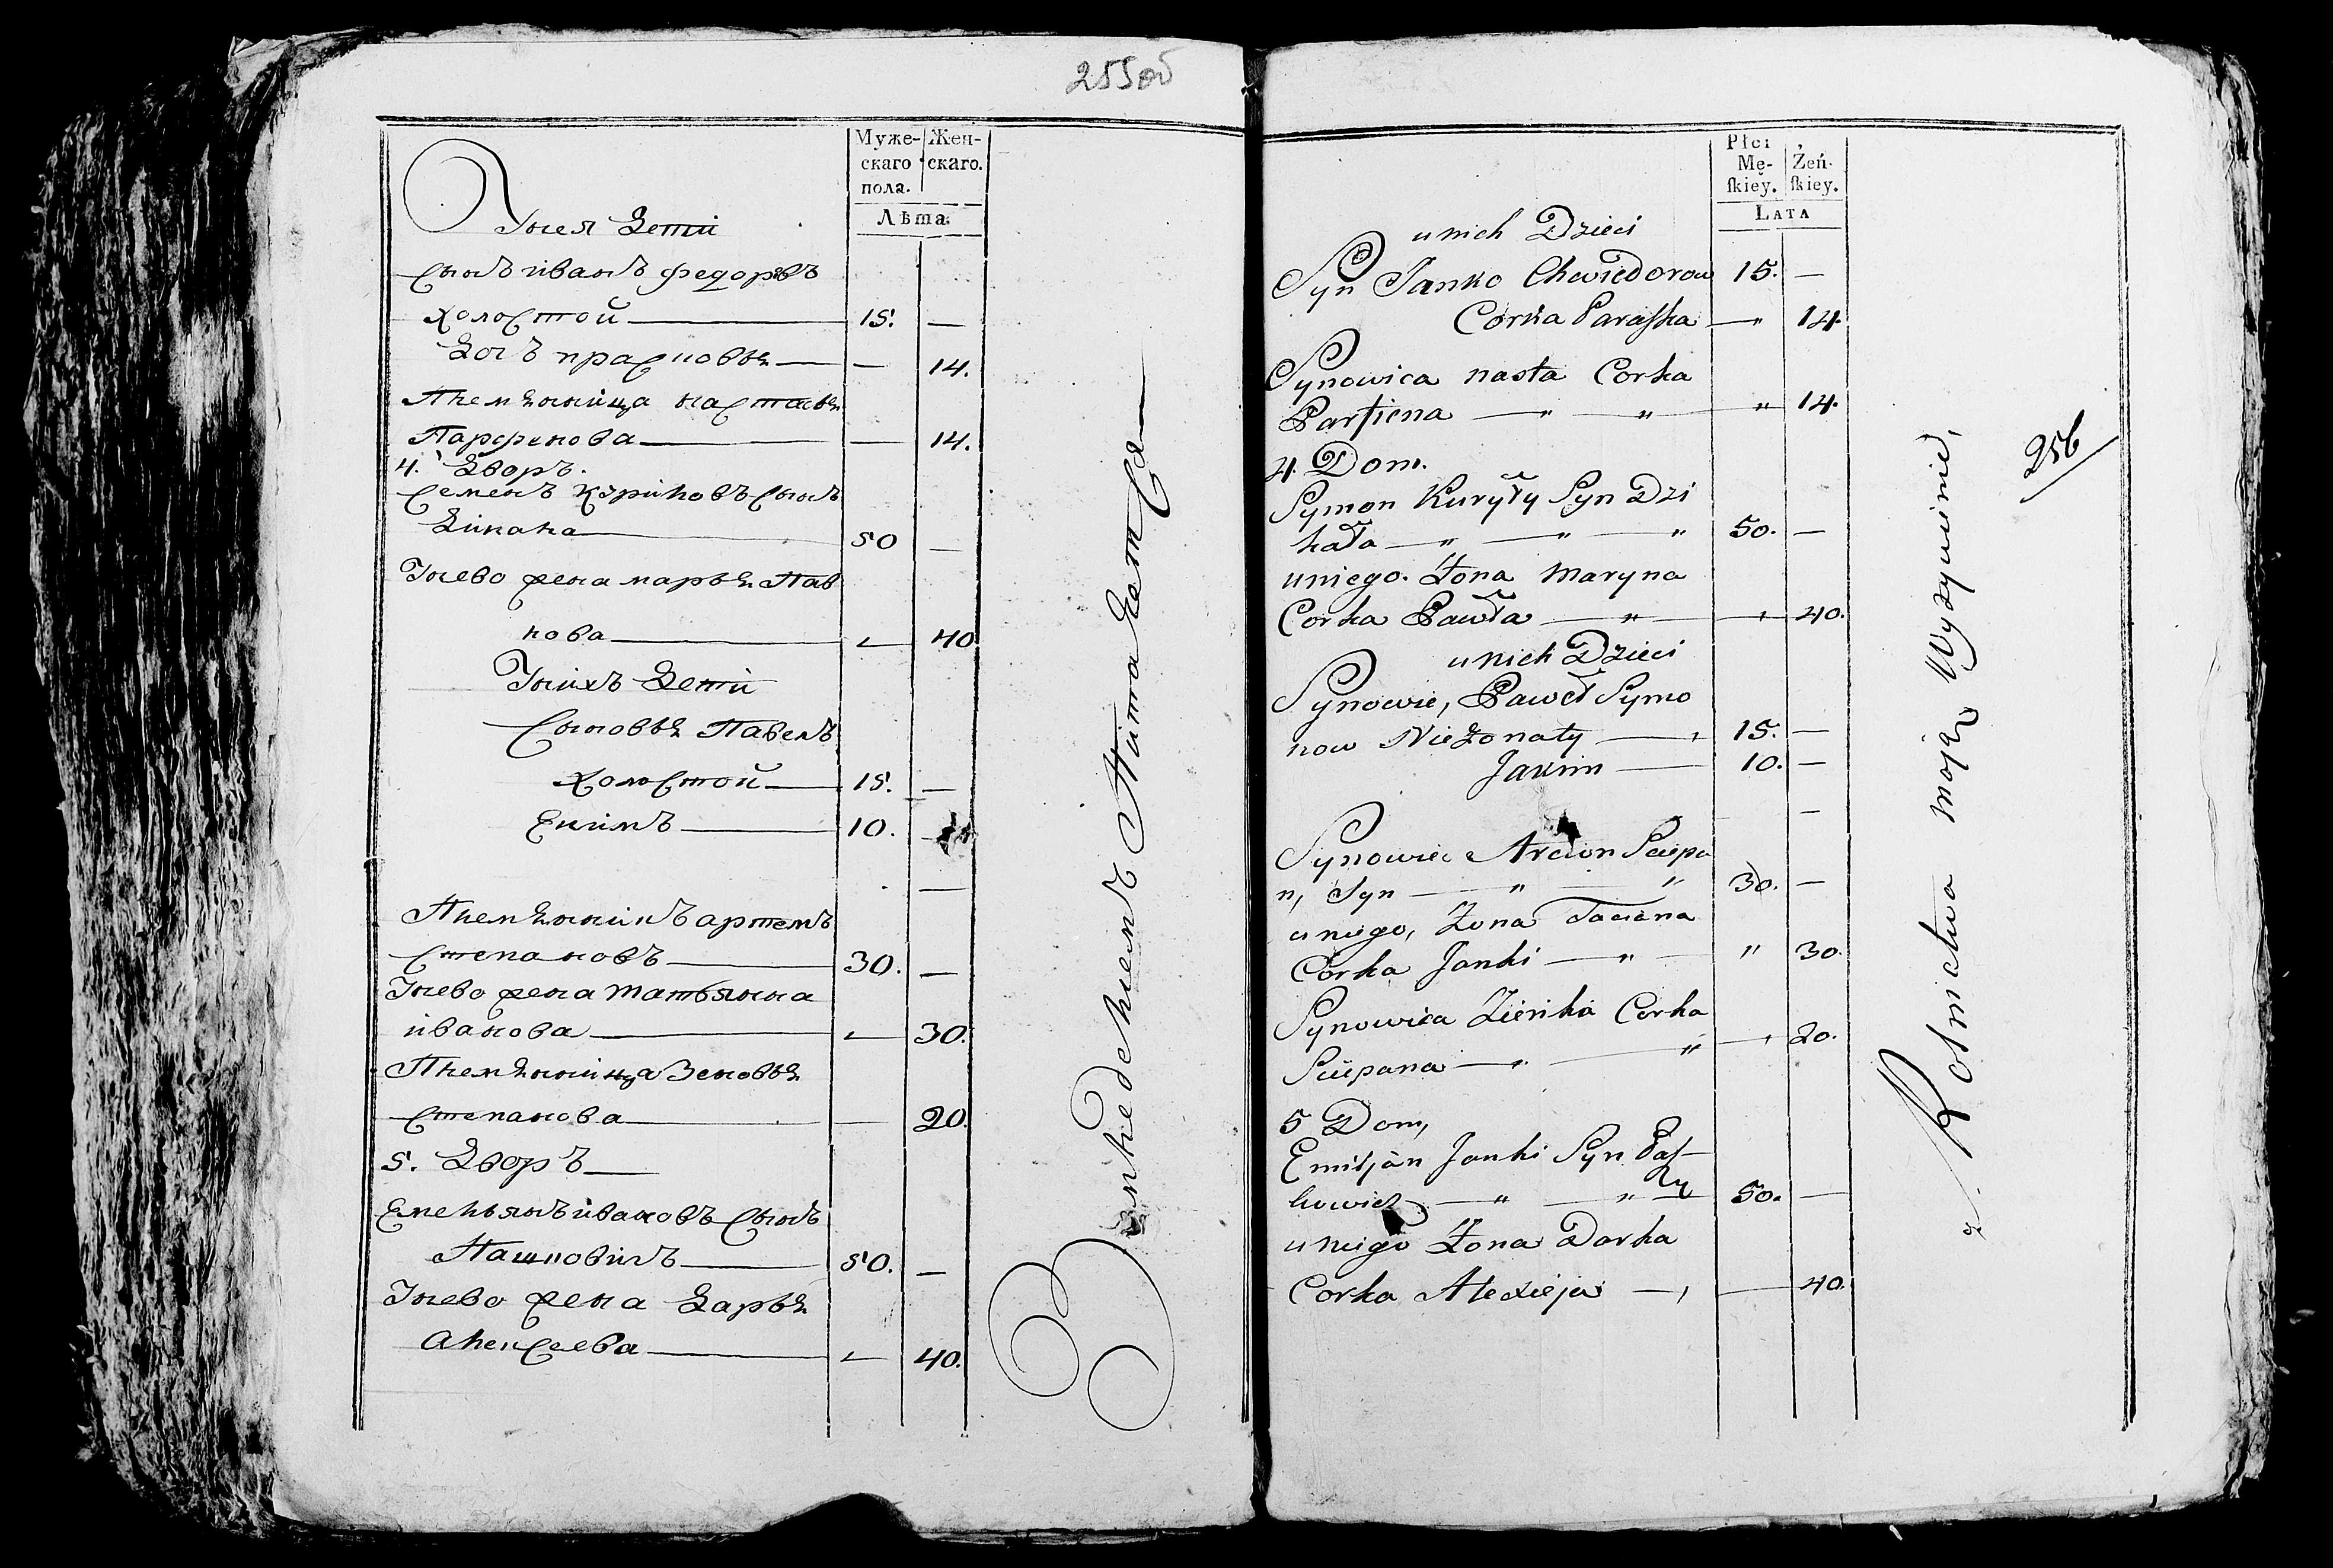 255об
Муже-
скаго
пола.
Жен-
скаго.
Лѣта.
Унея Дети
Сынъ иванъ Федоровъ
холостой 15. —
Дочь прасковья — 14.
Племянница настасья
Парфенова — 14.
4. Дворъ.
Семенъ Куриловъ Сынъ
Дикала 50 —
Унево жена марья Пав
лова — 40.
Унихъ Дети
Сыновья Павелъ
холостой 15. —
Екимъ 10. —
—
Племянникъ артемъ
Степановъ 30. —
Унево жена татьянна
иванова — 30.
Племянница Зеновья
Степанова — 20.
5. Дворъ
Емельянъ ивановъ Сынъ
Пашковичъ 50. —
Унево жена Дарья
алексеева — 40.
Płci
Mę-
ſkiey.
Żeń-
ſkiey.
LATA
u nich Dzieci
Syn Janko Chwiedorow 15. —
Corka Paraſka — 14.
Synowica nasta Corka
Parfiena — " — " " 14.
4. Dom.
Symon Kuryły Syn Dzi
kała — " — " — " 50. —
uniego. Żona Maryna
Corka Pawła — " — 40.
u nich Dzieci
Synowie, Paweł Symo
now Nieżonaty — 15. —
Jakim — 10. —
—
Synowiec Arciom Sciepa
n, Syn — " — " 30. —
u niego, Żona Taciana
Corka Janki — " — " 30.
Synowica Zieńka Corka
Sciepana — " — 20.
5 Dom,
Emiljan Janki Syn Paſ-
kowicz — " — " 50. —
u niego Żona Darka
Corka Alexieja —, — 40.
256
z. Rotmistrwa mojżą Wyszynie,